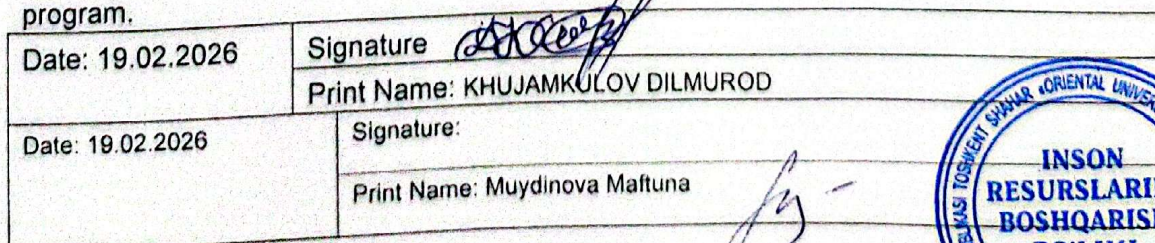 program.
Date: 19.02.2026
Signature
Print Name: KHUJAMKULOV DILMUROD
Date: 19.02.2026
Signature:
Print Name: Muydinova Maftuna
TOSHKENT SHAHAR «ORIENTAL
INSON
BOSHQARISH